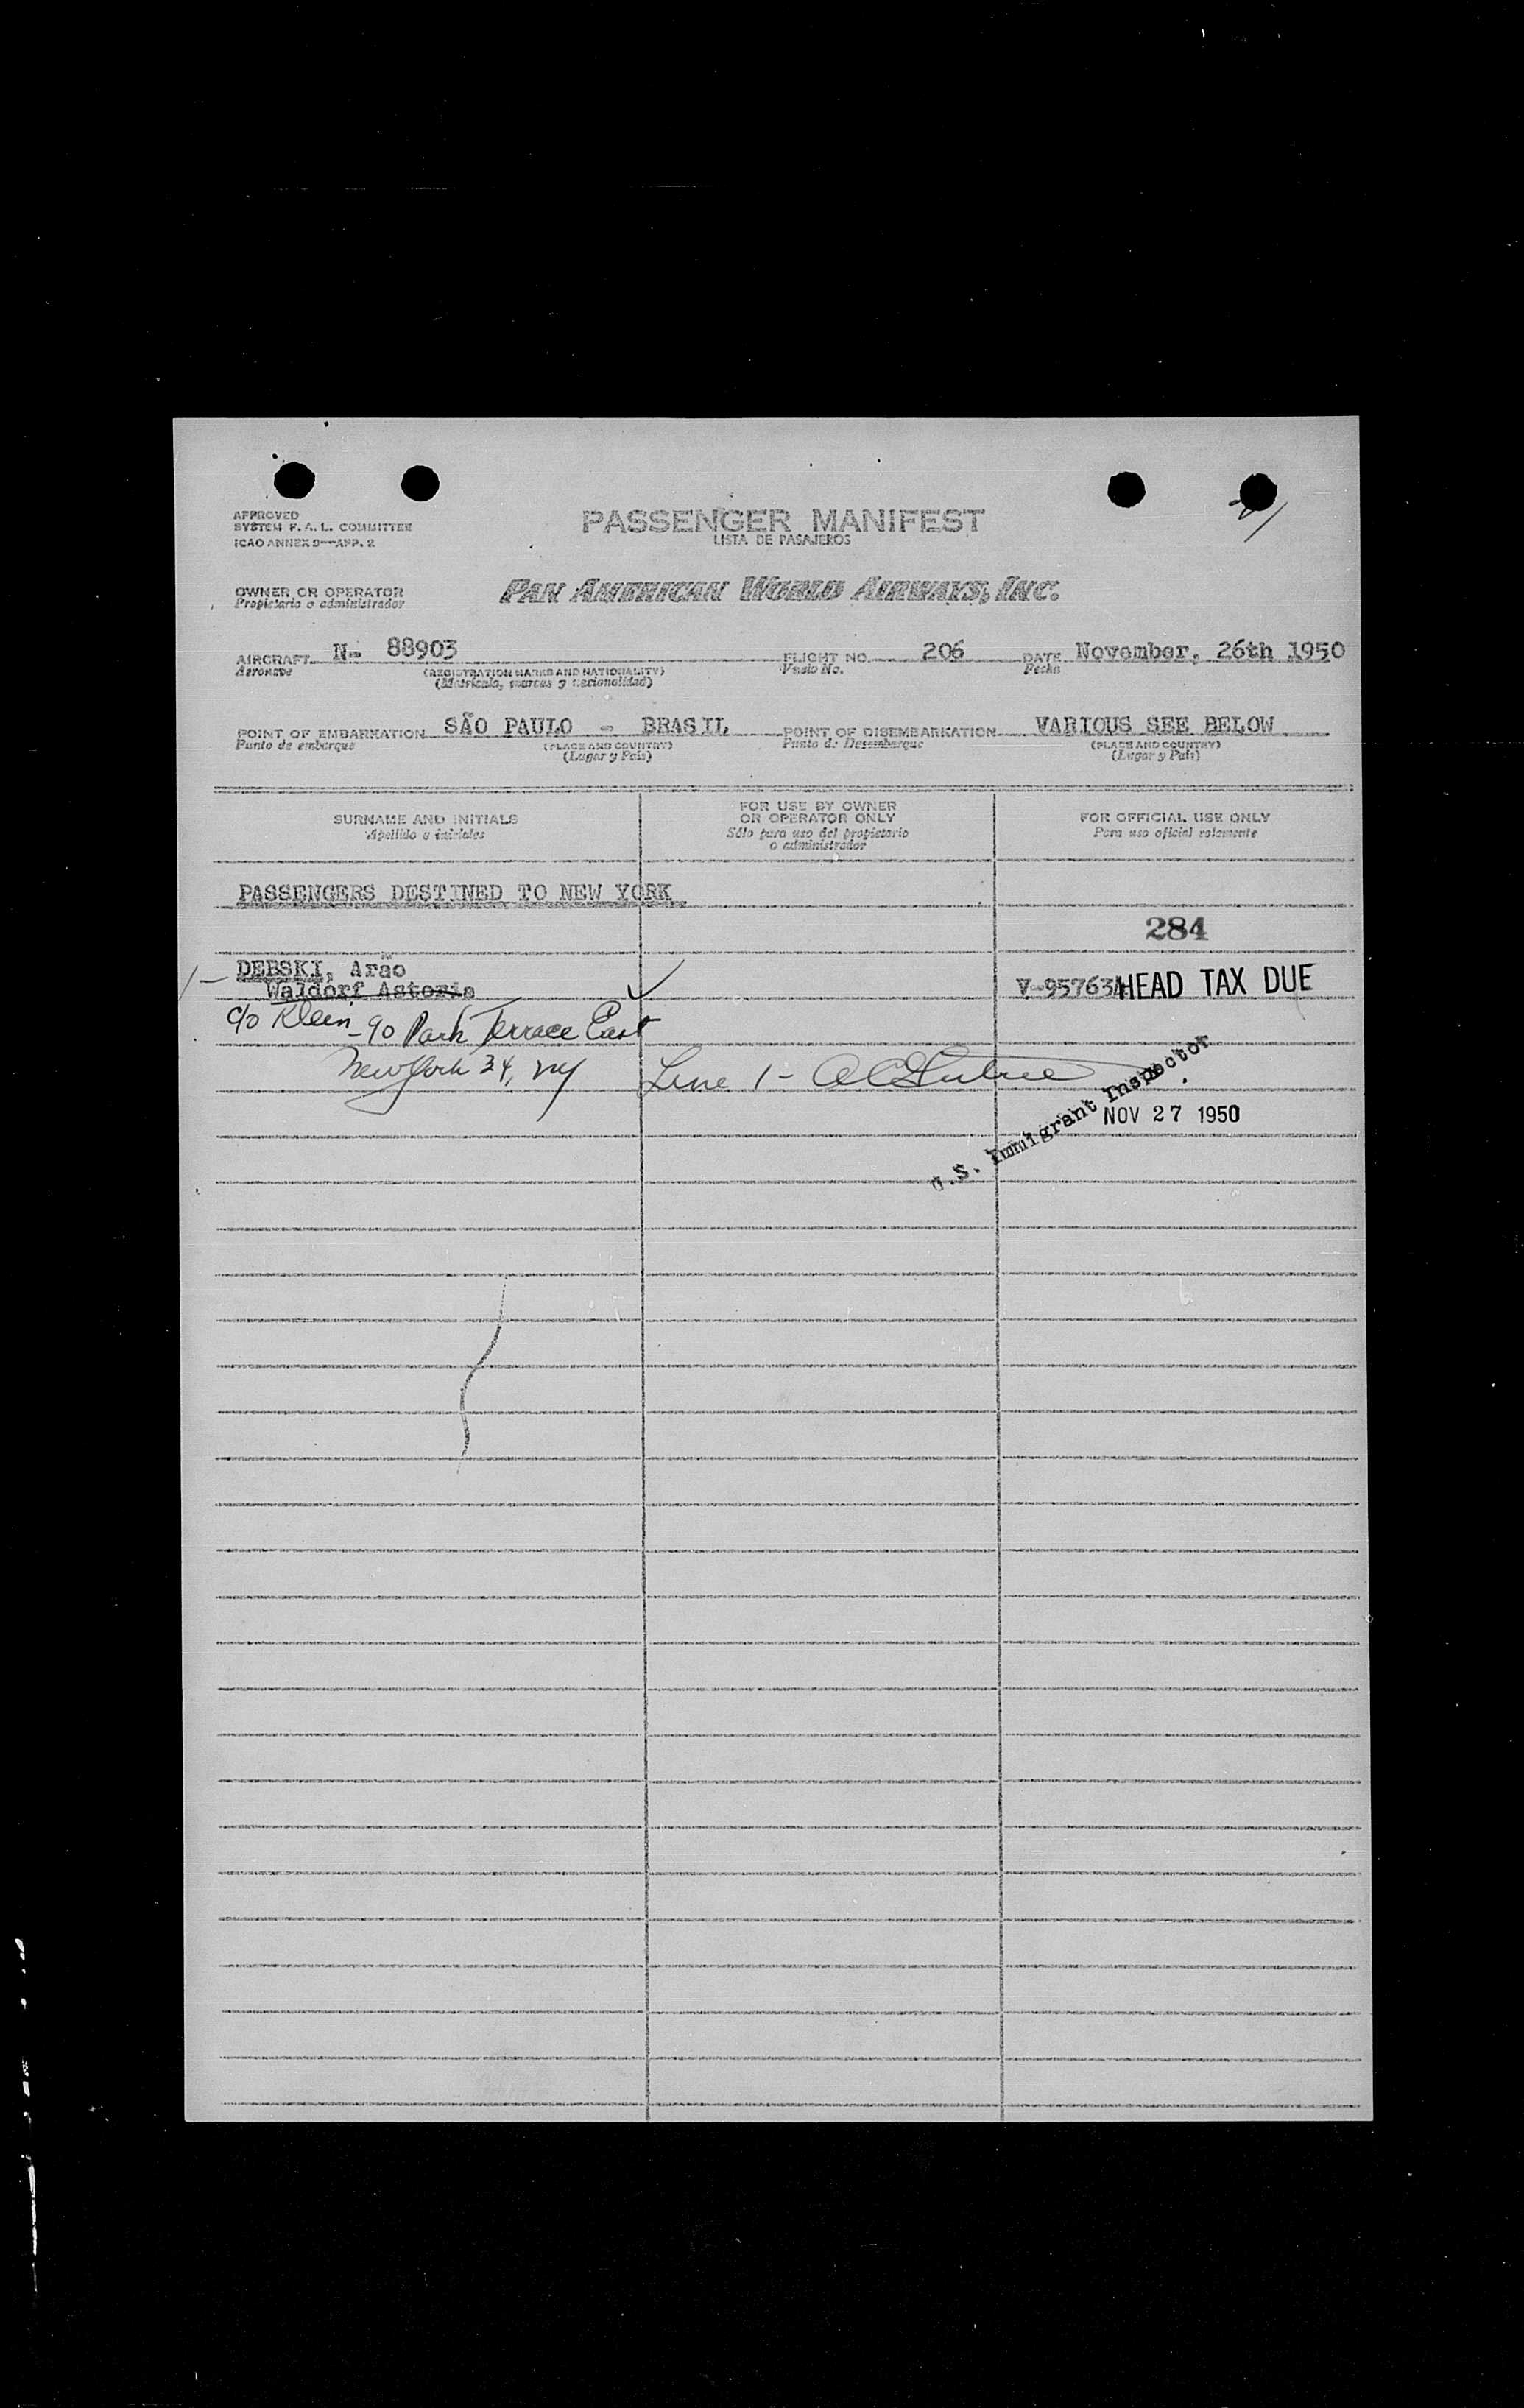 APPROVED
SYSTEM F.A.L. COMMITTEE
ICAO ANNEX 9—APP. 2
PASSENGER MANIFEST
LISTA DE PASAJEROS
OWNER OR OPERATOR
Propietario o administrador
PAN AMERICAN WORLD AIRWAYS, INC.
AIRCRAFT N- 88903 FLIGHT NO. 206 DATE November, 26th 1950
Aeronave (REGISTRATION MARKS AND NATIONALITY) Vuelo No. Fecha
(Matrícula, marcas y nacionalidad)
POINT OF EMBARKATION SÃO PAULO - BRASIL POINT OF DISEMBARKATION VARIOUS SEE BELOW
Punto de embarque (PLACE AND COUNTRY) Punto de Desembarque (PLACE AND COUNTRY)
(Lugar y País) (Lugar y País)
SURNAME AND INITIALS
Apellido e iniciales
FOR USE BY OWNER
OR OPERATOR ONLY
Sólo para uso del propietario
o administrador
FOR OFFICIAL USE ONLY
Para uso oficial solamente
PASSENGERS DESTINED TO NEW YORK
284
1- DEBSKI, Arão
Waldorf Astoria
V-957634 HEAD TAX DUE
c/o Kleen - 90 Park Terrace East
New York 34, NY
Line 1-
U.S. Immigrant Inspector
NOV 27 1950